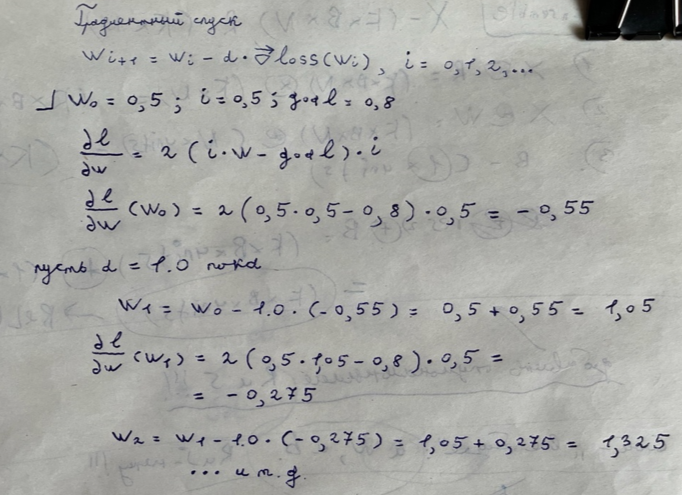 Градиентный спуск
w_{i+1} = w_i - α · ∇⃗ loss(w_i), i = 0,1,2,...
⅃ w_0 = 0,5 ; i = 0,5 ; goal = 0,8
∂l/∂w = 2 (i · w - goal) · i
∂l/∂w (w_0) = 2 (0,5 · 0,5 - 0,8) · 0,5 = - 0,55
пусть α = 1.0 пока
w_1 = w_0 - 1.0 · (-0,55) = 0,5 + 0,55 = 1,05
∂l/∂w (w_1) = 2 (0,5 · 1,05 - 0,8) · 0,5 =
= - 0,275
w_2 = w_1 - 1.0 · (-0,275) = 1,05 + 0,275 = 1,325
... и т.д.